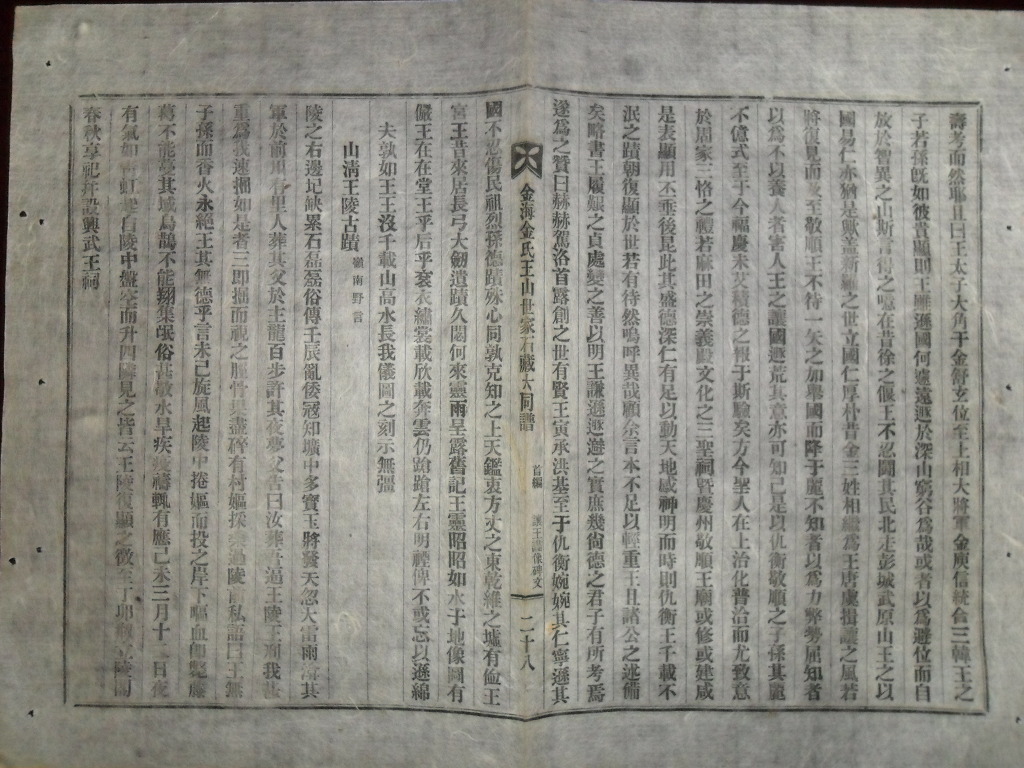 壽考而然耶且曰王太子大角干金舒玄位至上相大將軍金庾信統合三韓王之
子若孫旣如彼貴顯則王雖遜國何遽遠遯於深山窮谷爲哉或者以爲避位而自
放於智異之山斯言得之噫在昔徐之偃王不忍鬪其民北走彭城武原山王之以
國易仁亦猶是歟盖新羅之世立國仁厚朴昔金三姓相繼爲王唐虞揖讓之風若
將復見而及至敬順王不待一矢之加舉國而降于麗不知者以爲力弊勢屈知者
以爲不以養人者害人王之讓國遯荒其意亦可知已是以仇衡敬順之子孫其麗
不億式至于今福慶未艾積德之報于斯驗矣方今聖人在上治化普洽而尤致意
於周家三恪之禮若麻田之崇義殿文化之三聖祠曁慶州敬順王廟或修或建咸
是表顯用不垂後昆此其盛德深仁有足以動天地感神明而時則仇衡王千載不
泯之蹟朝復顯於世若有待然嗚呼異哉顧余言本不足以輕重王且諸公之述備
矣略書王履艱之貞處變之善以明王謙遜遯避之實庶幾尙德之君子有所考焉
遂爲之贊曰赫赫駕洛首露創之世有賢王寅承洪基至于仇衡婉婉其仁寧遜其
金海金氏王山世家石藏大同譜
首編
讓王 像碑文
二十八
國不忍傷民祖烈孫德蹟殊心同孰克知之上天鑑衷方丈之東乾維之墟有侐王
宮王昔來居長弓大劒遺蹟久閟何來靈雨呈露舊記王靈昭昭如水于地像圖有
儼王在在堂王乎后乎袞衣繡裳載欣載奔雲仍蹌蹌左右明禋俾不或忘以遜綿
夫孰如王王沒千載山高水長我儀圖之刻示無彊
山淸王陵古蹟 嶺南野言
陵之右邊圮缺累石磊磊俗傳壬辰亂倭冦知壙中多寶玉將發天忽大雷雨 其
軍於前川 里人葬其父於主龍百步許其夜夢父告曰汝葬吾逼王陵王 我
重爲我速掘如是者三卽掘而視之脛骨果盡碎有村嫗採 過陵前私語曰王無
子孫而香火永絶王其無德乎言未已旋風起陵中捲嫗而投之岸下嘔血卽斃藤
葛不能蔓其域鳥鵲不能翔集氓俗甚敬水旱疾疫禱輒有應己未三月十 日夜
有氣如 虹 自陵中盤空而升四隣見之皆云王陵復顯之徵至丁卯 立陵閣
春秋享祀幷設興武王祠